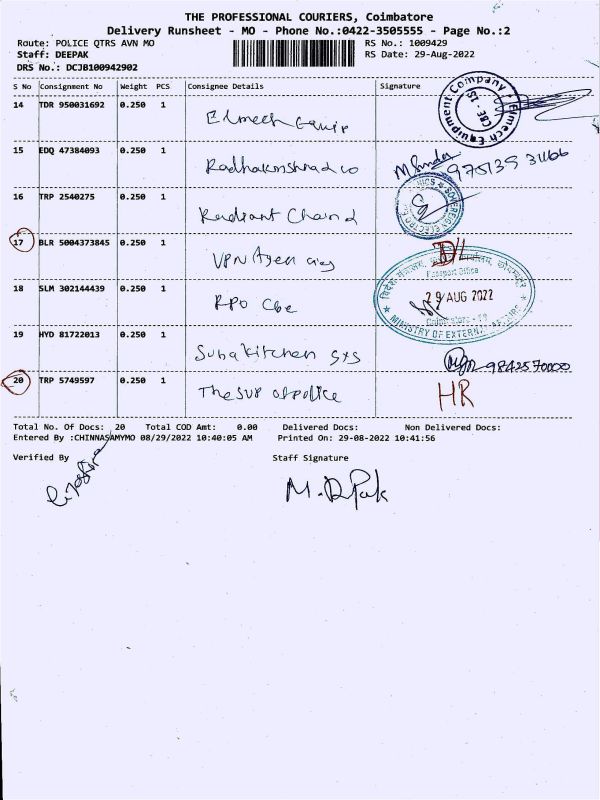 THE PROFESSIONAL COURIERS, Coimbatore
Delivery Runsheet - MO - Phone No.:0422-3505555 - Page No.:2
Route: POLICE QTRS AVN MO RS No.: 1009429
Staff: DEEPAK RS Date: 29-Aug-2022
DRS No.: DCJB100942902
S No Consignment No Weight PCS Consignee Details Signature
14 TDR 950031692 0.250 1 Elmech Equip
Elmech Equipment Company CBE - 15
15 EDQ 47384093 0.250 1 Radhakrishna d co 975135 31166
16 TRP 2540275 0.250 1 Radiant Chain d
17 BLR 5004373845 0.250 1 VPN Agencies D/L
18 SLM 302144439 0.250 1 RPO Cbe
Passport Office
29 AUG 2022
MINISTRY OF EXTERNAL AFFAIRS
19 HYD 81722013 0.250 1 Suba kitchen sys 9842570000
20 TRP 5749597 0.250 1 The sup of police HR
Total No. Of Docs: 20 Total COD Amt: 0.00 Delivered Docs: Non Delivered Docs:
Entered By :CHINNASAMYMO 08/29/2022 10:40:05 AM Printed On: 29-08-2022 10:41:56
Verified By Staff Signature
M. DPak